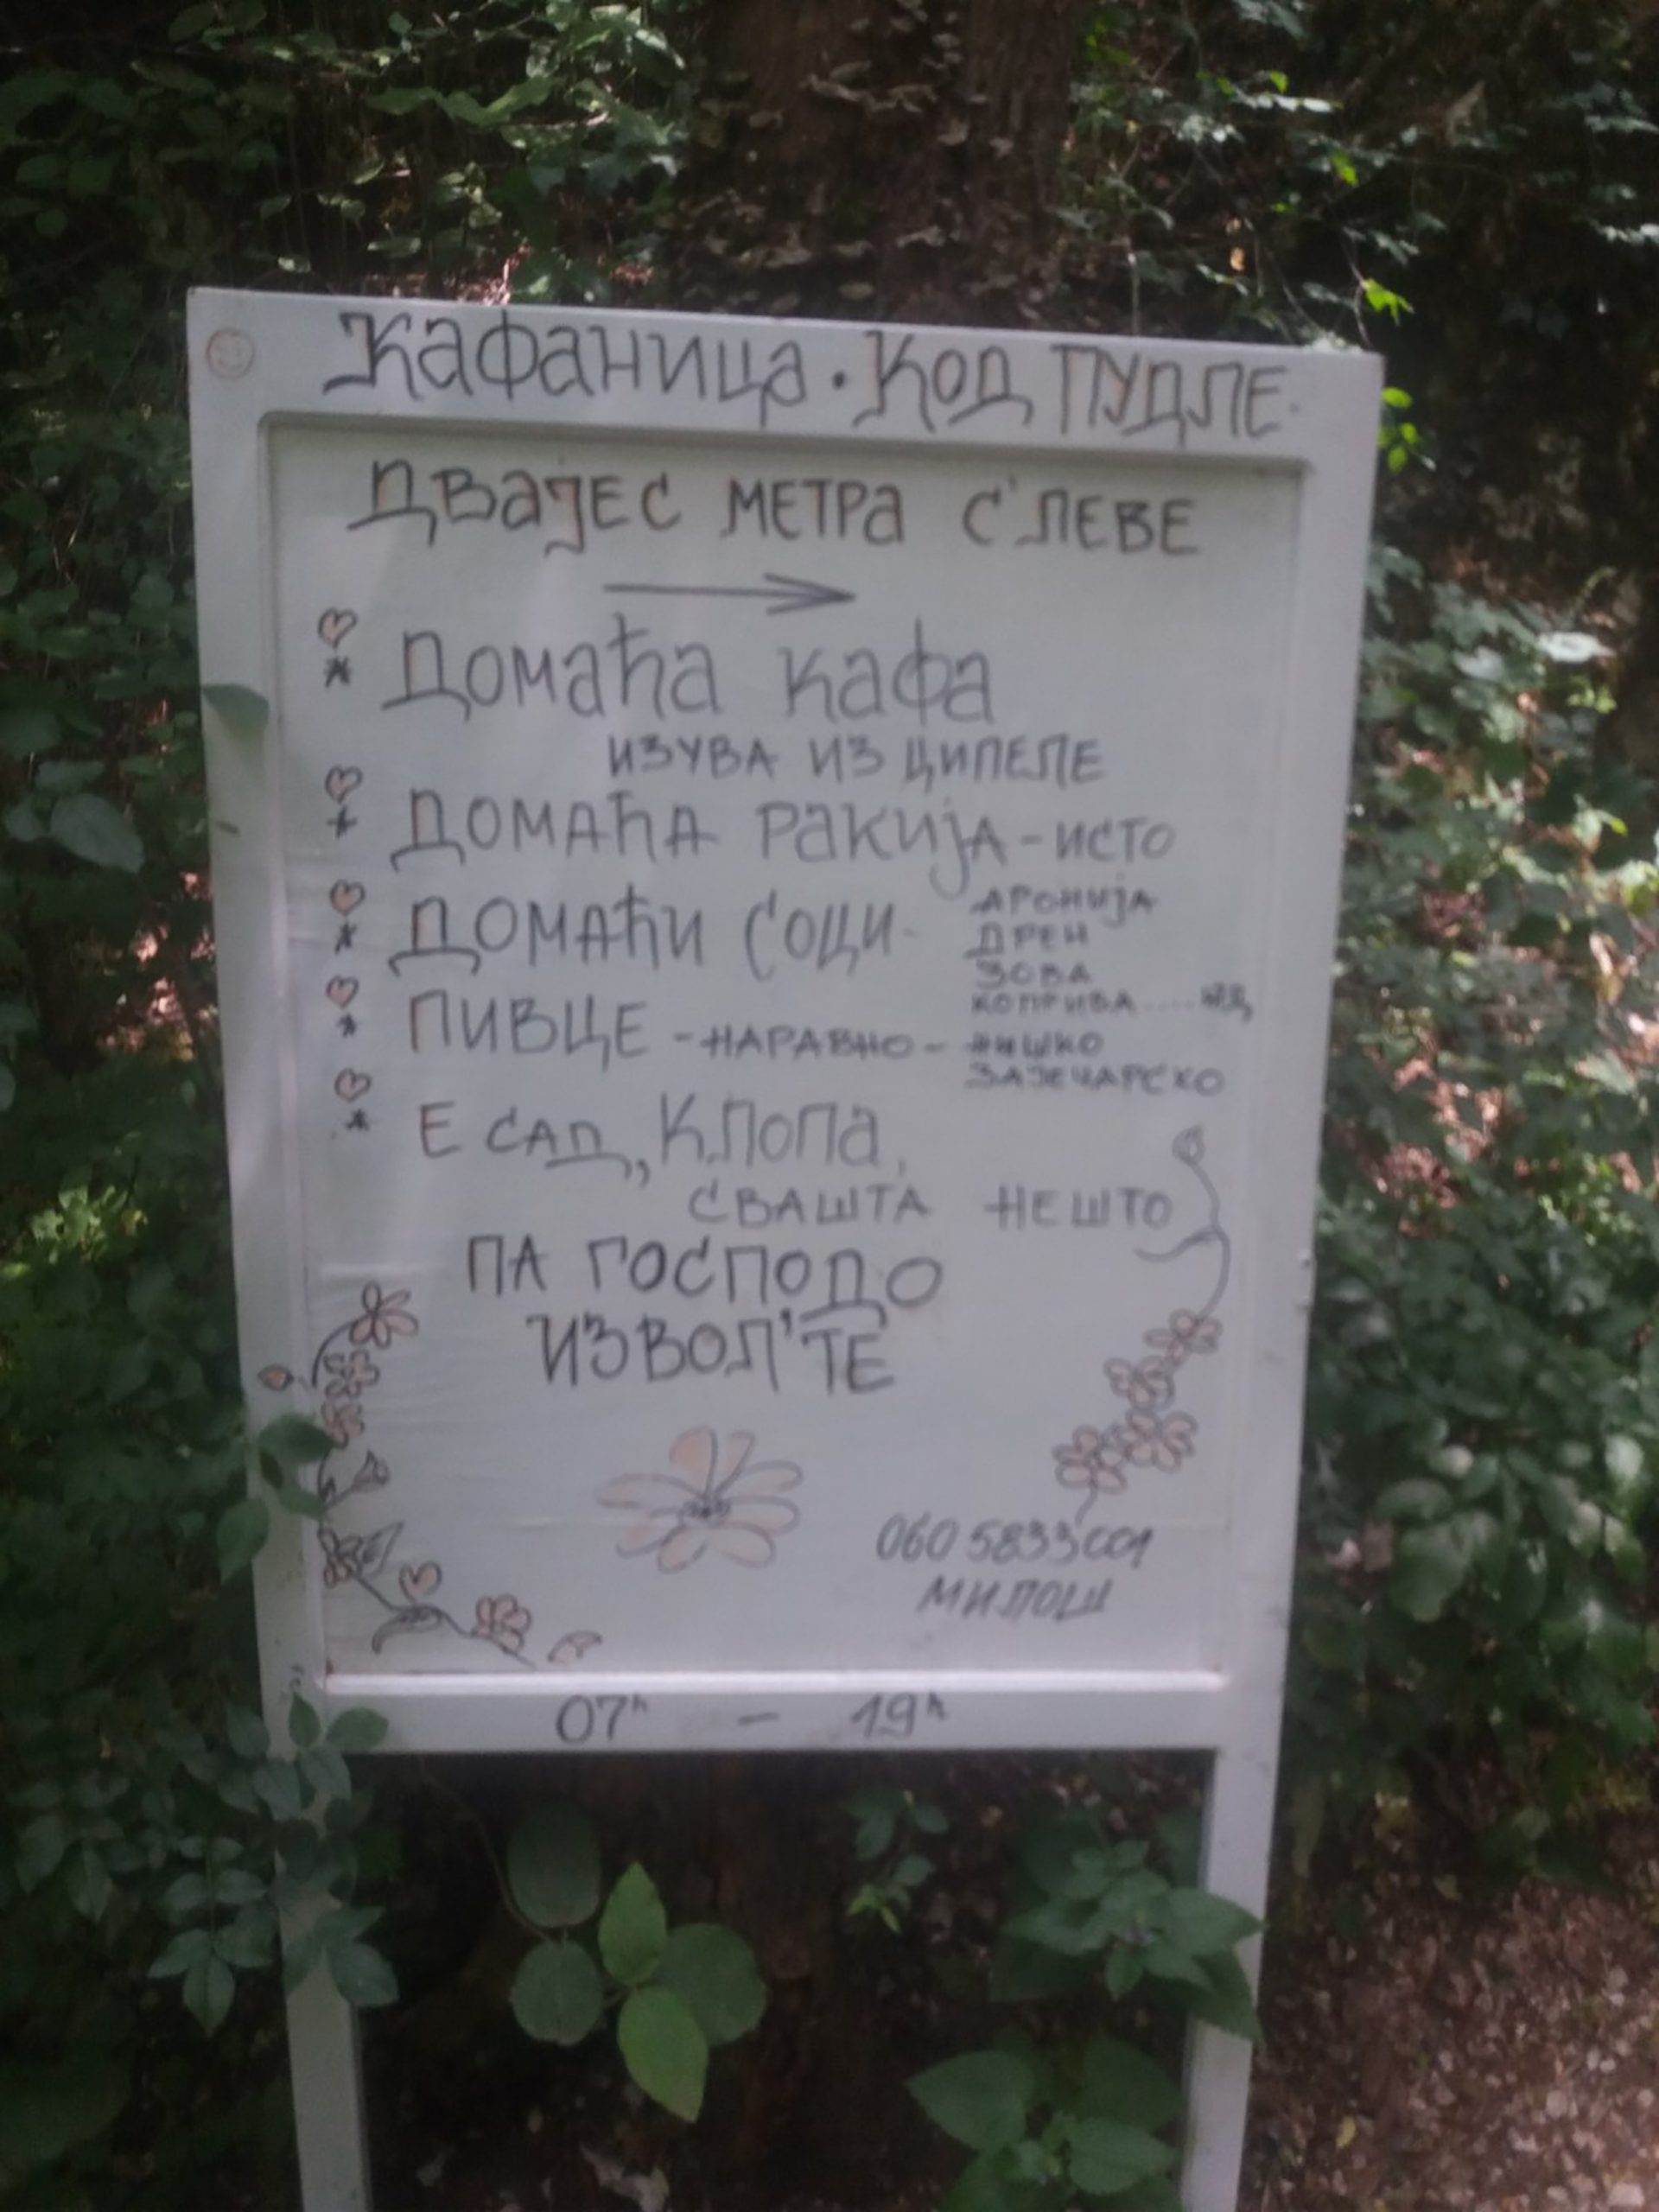 Кафаница · Код ПУДЛЕ.
ДВАЈЕС МЕТРА С'ЛЕВЕ
Домаћа кафа
ИЗУВА ИЗ ЦИПЕЛЕ
ДОМАЋА РАКИЈА - ИСТО
ДОМАЋИ СОЦИ - АРОНИЈА
ДРЕН
ЗОВА
КОПРИВА
ПИВЦЕ - НАРАВНО - НИШКО
ЗАЈЕЧАРСКО
Е САД, КЛОПА,
СВАШТА НЕШТО
ПА ГОСПОДО
ИЗВОЛ'ТЕ
060 5833001
МИЛОШ
07h - 19h